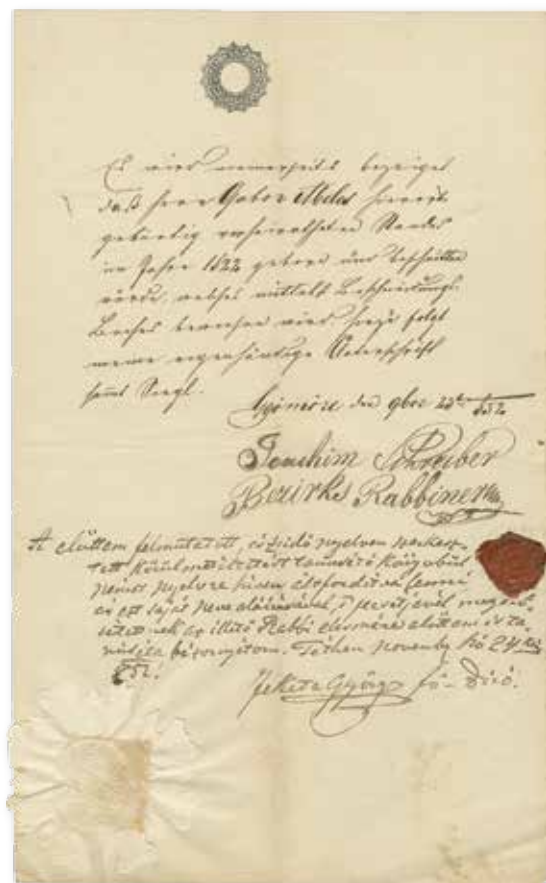 Es wird meinerseits bezeiget
daß Herr Gabor Abeles hierorts
gebürtig verheiratheten Standes
im Jahre 1822 geboren und beschnitten
wurde, welches mittelst Beschneidungs-
Buches bewiesen wird. hiezu folgt
meine eigenhändige Unterschrift
sammt Siegl.
Gömöre den 9ber 23ten 852
Joachim Schreiber
Bezirks Rabbiner
Az előttem felmutatott, s zsidó nyelven szerkesz-
tett környülmetéltetést tanusító könyvbül
német nyelvre híven átfordítva lenni
és ezt saját neve aláírásával, s pecsétjével megerő-
sítettnek az illető Rabbi előttem
bizonyítom. Téthen novemb hó 24
852.
Fekete György fő-Bíró.